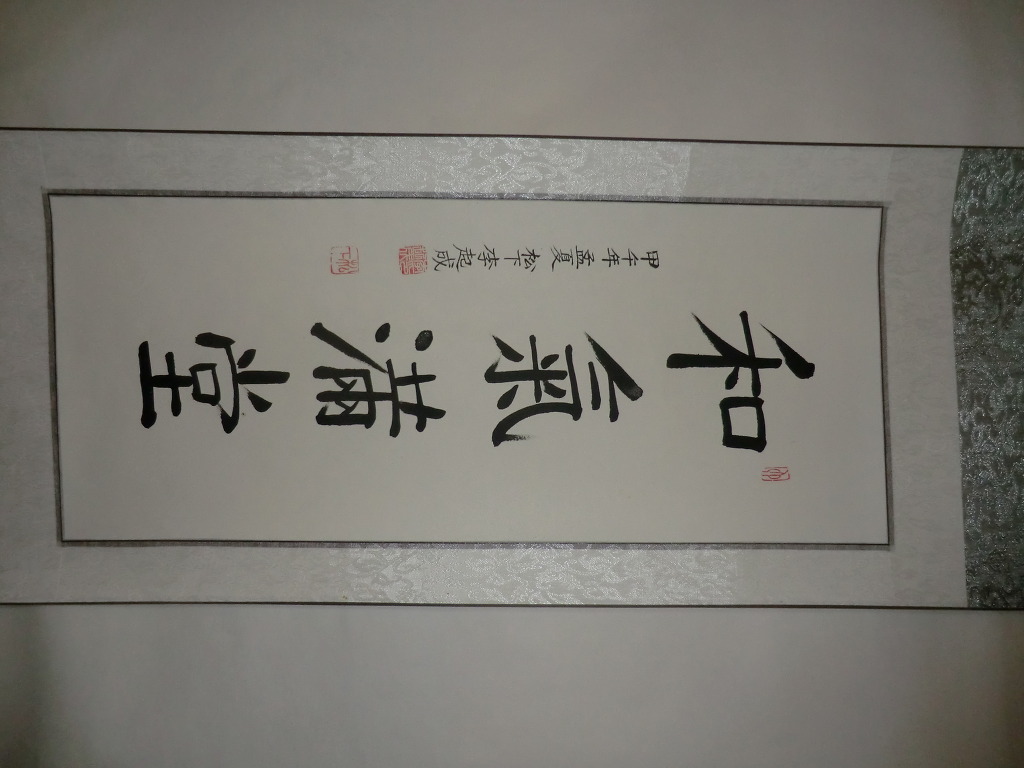 和氣滿堂
甲午年孟夏松下李起成